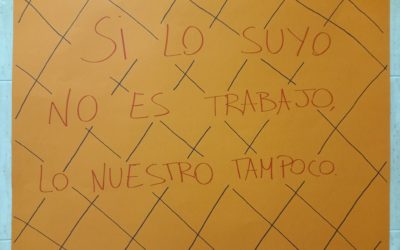 SI LO SUYO
NO ES TRABAJO,
LO NUESTRO TAMPOCO.